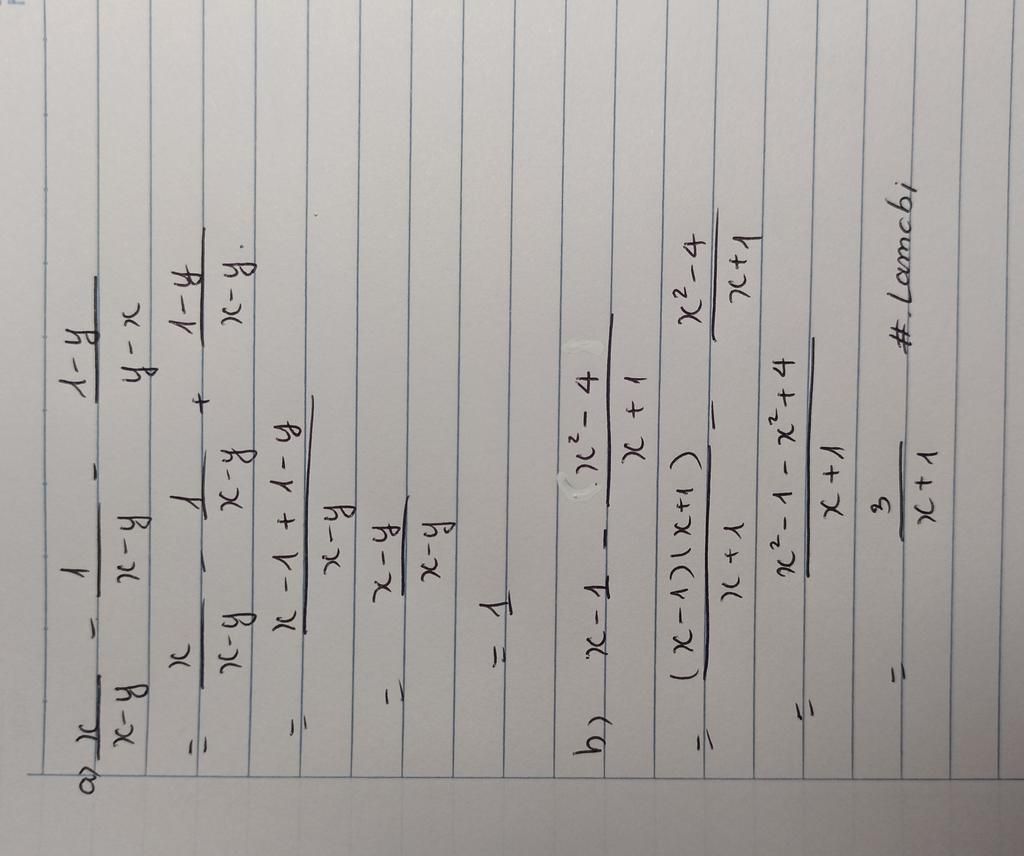 a) x/(x-y) - 1/(x-y) - (1-y)/(y-x)
= x/(x-y) - 1/(x-y) + (1-y)/(x-y).
= (x-1+1-y)/(x-y)
= (x-y)/(x-y)
= 1
b) x-1 - (x²-4)/(x+1)
= (x-1)(x+1)/(x+1) - (x²-4)/(x+1)
= (x²-1-x²+4)/(x+1)
= 3/(x+1) #Lamcbi